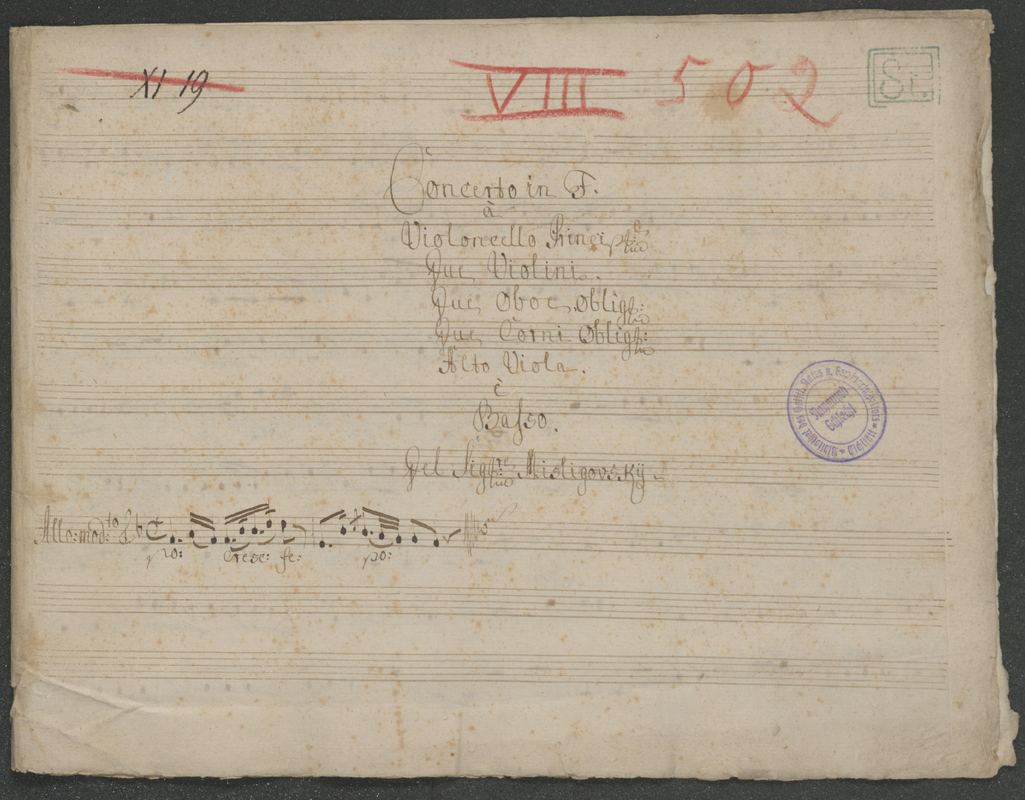 XI 19
VIII 502
St.
Concerto in F.
à
Violoncello Princip:le
Due Violini.
Due Oboe, oblig:ti
Due Corni oblig:ti
Alto Viola.
è
Basso.
Del Sig:re Misligovsky.
Allo: mod:to
po: cresc: fe: po: